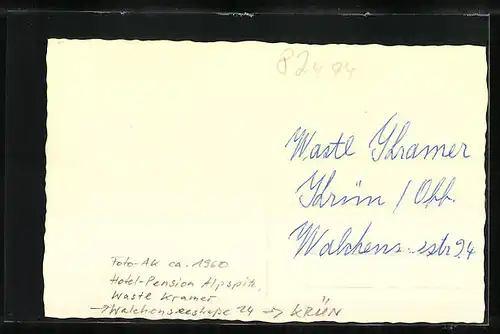 82494
Wastl Kramer
Krün / Obb.
Walchens.-estr 24
Foto-AK ca. 1960
Hotel-Pension Alpspitz,
Wastl Kramer
→ Walchenseestraße 24 → KRÜN